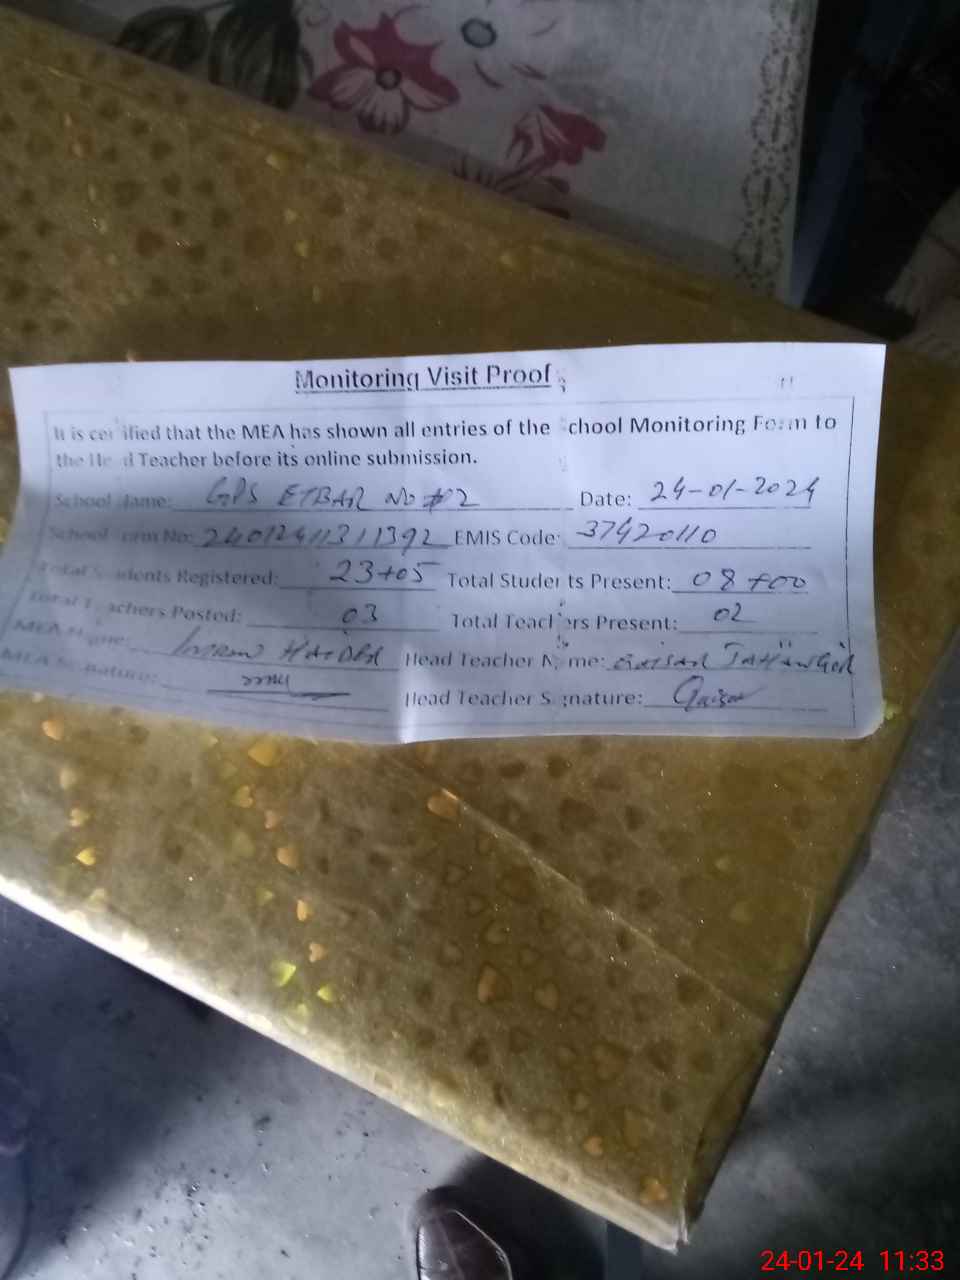 Monitoring Visit Proof
It is certified that the MEA has shown all entries of the School Monitoring Form to
the Head Teacher before its online submission.
School Name: GPS ETBAR No #2 Date: 24-01-2024
School Form No: 24012411311392 EMIS Code: 37420110
Total Students Registered: 23+05 Total Students Present: 08+00
Total Teachers Posted: 03 Total Teachers Present: 02
MEA Name: Imran HAIDER Head Teacher Name: Qaisar JAHANGIR
MEA Signature: Head Teacher Signature: Qaisar
24-01-24 11:33